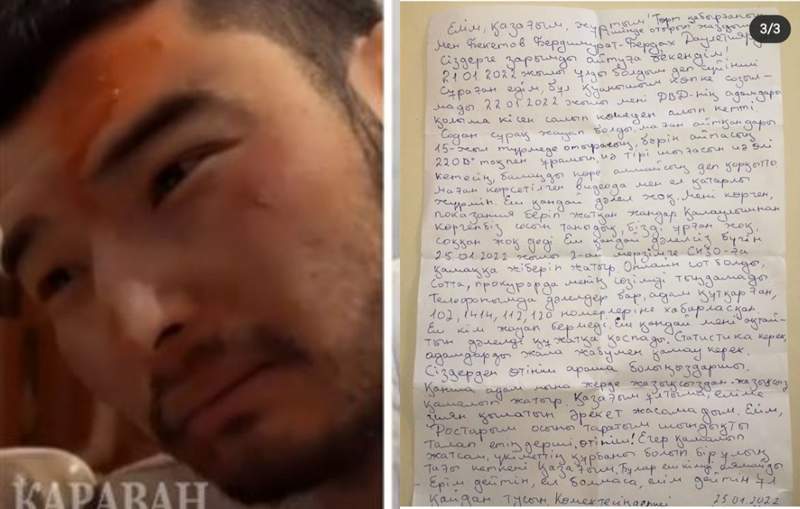 КАРАВАН
3/3
Елім, қазағым, жұртым! Төрт қабырғаның
ішінде отырып жаздым
Мен Бекетов Бердимурат-Бердах Даулетияр
Сіздерге зарымды айтуға бекендім!
21.01.2022 жылы ұлды болдым деп сүйінші
сұраған едім, бұл қуанышым көпке созыл-
мады. 22.01.2022 жылы мені ДВД-нің адамдары
қолыма кісен салып көшеден алып кетті
Содан сұрақ жауап болды, маған айтқандары
15-жыл түрмеде отырасың, бәрін айтпасаң
220В тоқпен ұрамын, не тірі шығасың не өлі
кетесің, балаңды көре алмайсың деп қорқытты
маған көрсетілген видеода мен ел қатарлы
жүрмін. Еш қандай дәлел жоқ, мені көрген,
показания беріп жатқан жандар қамаушыннан
көргенбіз сосын танодық, бізді ұрған жоқ
соққан жоқ деді Еш қандай дәлелсіз бүгін
25.01.2022 жылы 2-ай мерзімге СИЗО-ға
қамаққа жіберіп жатыр. Онлайн сот болды.
Сотта, прокурорда менің сөзімді тыңдамады
Телефонымда дәлелдер бар, адам құтқарған,
102, 1414, 112, 120 номерлеріне хабарласқан
Еш кім жауап бермеді. Еш қандай мені ақтай-
тын дәлелді құжатқа қоспады. Статистика керек,
адамдарды жала жабумен қамау керек.
Сіздерден өтініш араша болыңыздаршы.
Қанша адам мына жерде жазықсыздан-жазықсыз
қамалып жатыр. Қазағым ұлтыма, еліме
зиян қылатын әрекет жасамадым. Елім,
Достарым осыны таратып шындықты
талап етіңдерші, өтініш! Егер қамалып
жатсам, үкіметтің құрбаны болып бір ұлың
тағы кеткені Қазағым. Бұлар ешкімді аямайды
Ерім дейтін, ел болмаса, елім дейтін ұл
қайдан тусын. Көмектесіңдерші 25.01.2022